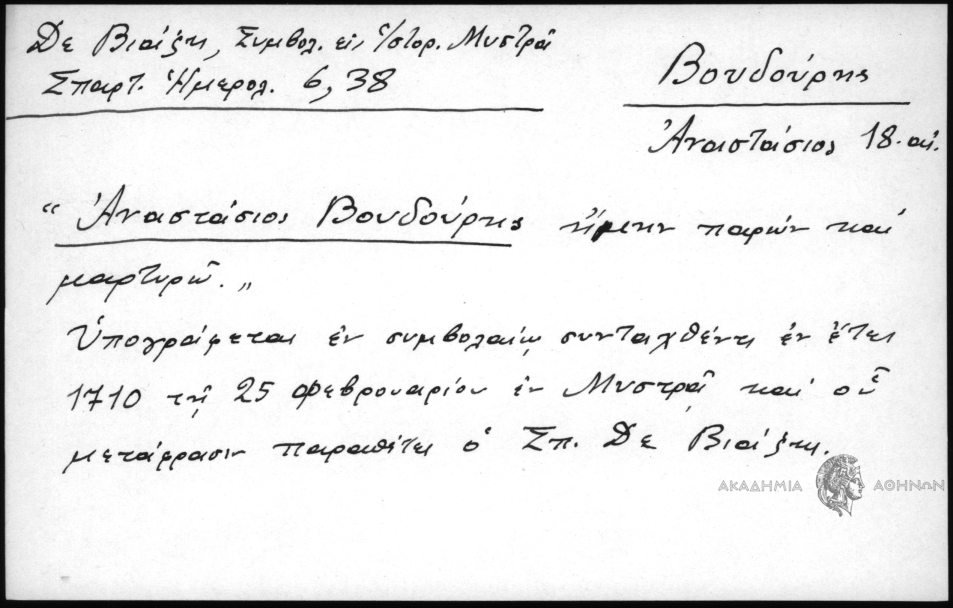 Δε Βιάζη, Συμβολ. εἰς Ἱστορ. Μυστρᾶ
Σπαρτ. Ἡμερολ. 6, 38
Βουδούρης
Ἀναστάσιος 18. αἰ.
“ Ἀναστάσιος Βουδούρης ἤμην παρών καί
μαρτυρῶ. „
Ὑπογράφεται ἐν συμβολαίῳ συνταχθέντι ἐν ἔτει
1710 τῇ 25 Φεβρουαρίου ἐν Μυστρᾷ καί οὗ
μετάφρασιν παραθέτει ὁ Σπ. Δε Βιάζης.
ΑΚΑΔΗΜΙΑ ΑΘΗΝΩΝ